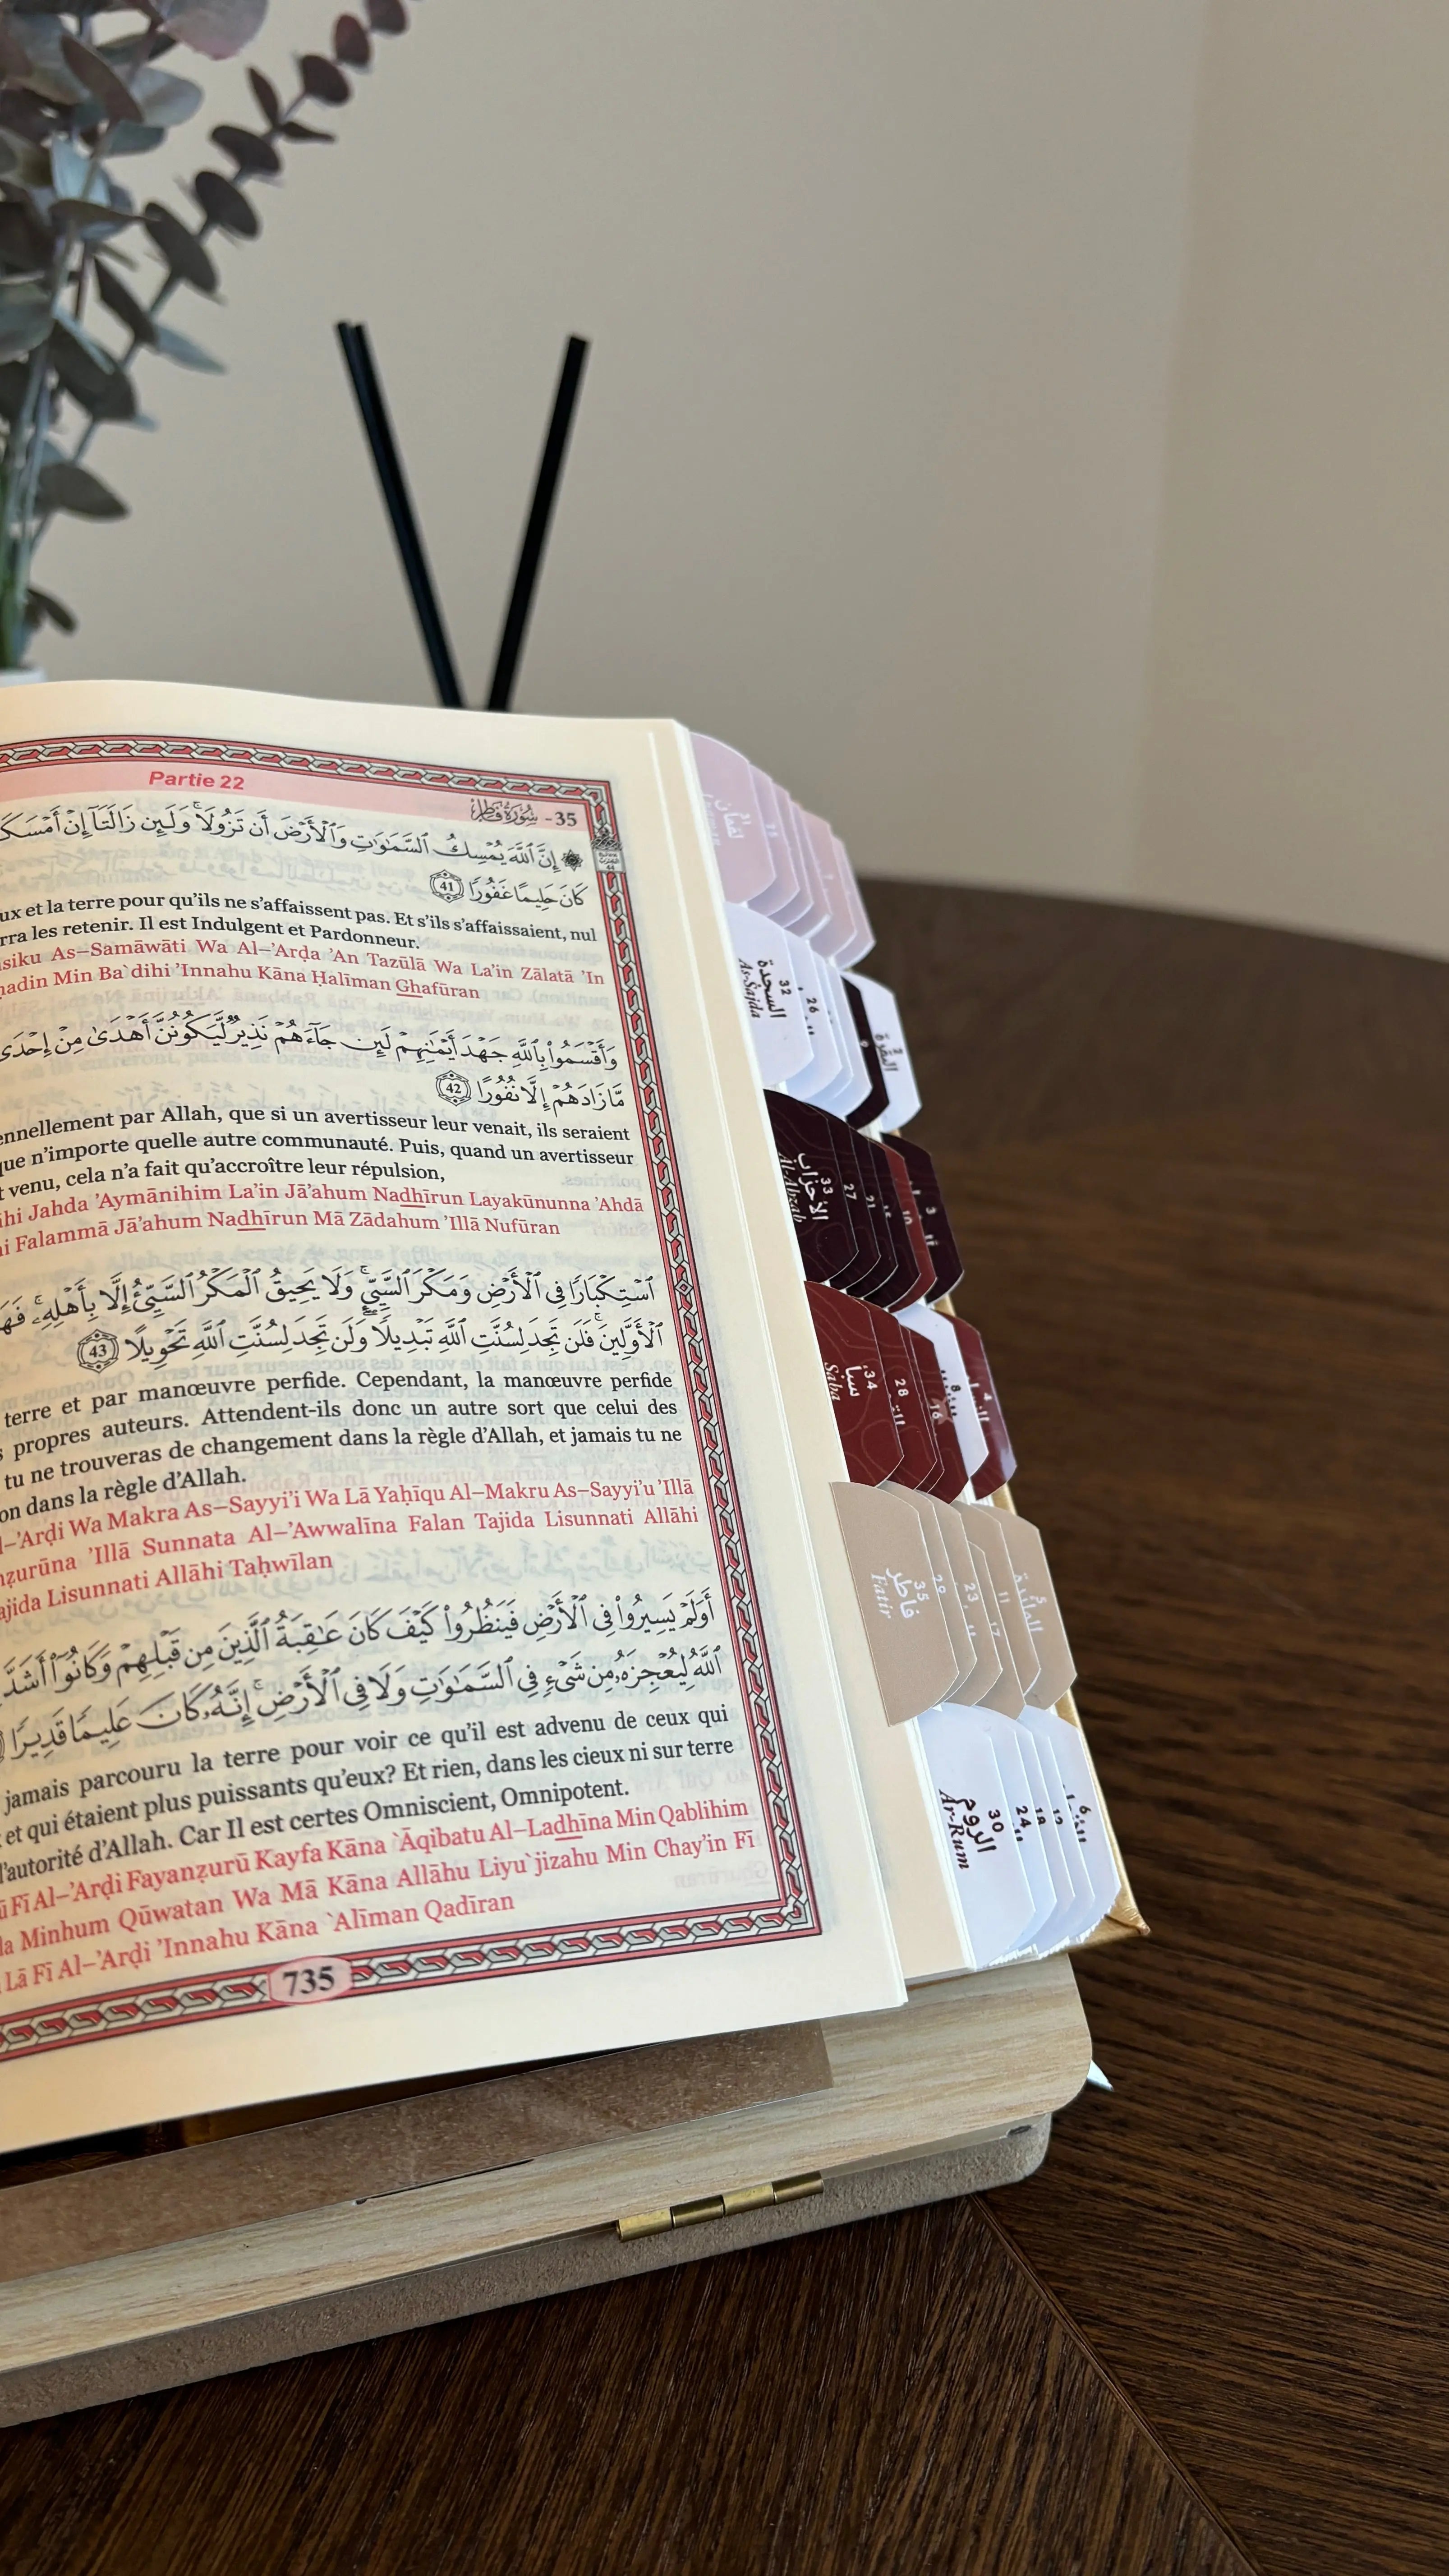 Partie 22
35- سُورَةُ فَاطِر
إِنَّ ٱللَّهَ يُمْسِكُ ٱلسَّمَٰوَٰتِ وَٱلْأَرْضَ أَن تَزُولَا ۚ وَلَئِن زَالَتَآ إِنْ أَمْسَكَ
كَانَ حَلِيمًا غَفُورًا 41
ux et la terre pour qu'ils ne s'affaissent pas. Et s'ils s'affaissaient, nul
rra les retenir. Il est Indulgent et Pardonneur.
siku As–Samāwāti Wa Al–'Arḍa 'An Tazūlā Wa La'in Zālatā 'In
ḥadin Min Ba`dihi 'Innahu Kāna Ḥalīman Ghafūran
وَأَقْسَمُوا۟ بِٱللَّهِ جَهْدَ أَيْمَٰنِهِمْ لَئِن جَآءَهُمْ نَذِيرٌ لَّيَكُونُنَّ أَهْدَىٰ مِنْ إِحْدَى
مَّا زَادَهُمْ إِلَّا نُفُورًا 42
ennellement par Allah, que si un avertisseur leur venait, ils seraient
que n'importe quelle autre communauté. Puis, quand un avertisseur
t venu, cela n'a fait qu'accroître leur répulsion,
ihi Jahda 'Aymānihim La'in Jā'ahum Nadhīrun Layakūnunna 'Ahdā
i Falammā Jā'ahum Nadhīrun Mā Zādahum 'Illā Nufūran
ٱسْتِكْبَارًا فِى ٱلْأَرْضِ وَمَكْرَ ٱلسَّيِّئِ ۚ وَلَا يَحِيقُ ٱلْمَكْرُ ٱلسَّيِّئُ إِلَّا بِأَهْلِهِۦ ۚ فَهَ
ٱلْأَوَّلِينَ ۚ فَلَن تَجِدَ لِسُنَّتِ ٱللَّهِ تَبْدِيلًا ۖ وَلَن تَجِدَ لِسُنَّتِ ٱللَّهِ تَحْوِيلًا 43
terre et par manœuvre perfide. Cependant, la manœuvre perfide
s propres auteurs. Attendent-ils donc un autre sort que celui des
tu ne trouveras de changement dans la règle d'Allah, et jamais tu ne
on dans la règle d'Allah.
l–'Arḍi Wa Makra As–Sayyi'i Wa Lā Yaḥīqu Al–Makru As–Sayyi'u 'Illā
nẓurūna 'Illā Sunnata Al–'Awwalīna Falan Tajida Lisunnati Allāhi
ajida Lisunnati Allāhi Taḥwīlan
أَوَلَمْ يَسِيرُوا۟ فِى ٱلْأَرْضِ فَيَنظُرُوا۟ كَيْفَ كَانَ عَٰقِبَةُ ٱلَّذِينَ مِن قَبْلِهِمْ وَكَانُوٓا۟ أَشَدَّ
ٱللَّهُ لِيُعْجِزَهُۥ مِن شَىْءٍ فِى ٱلسَّمَٰوَٰتِ وَلَا فِى ٱلْأَرْضِ ۚ إِنَّهُۥ كَانَ عَلِيمًا قَدِيرًا
jamais parcouru la terre pour voir ce qu'il est advenu de ceux qui
et qui étaient plus puissants qu'eux? Et rien, dans les cieux ni sur terre
l'autorité d'Allah. Car Il est certes Omniscient, Omnipotent.
ū Fī Al–'Arḍi Fayanẓurū Kayfa Kāna `Āqibatu Al–Ladhīna Min Qablihim
da Minhum Qūwatan Wa Mā Kāna Allāhu Liyu`jizahu Min Chay'in Fī
Lā Fī Al–'Arḍi 'Innahu Kāna `Alīman Qadīran
735
31
لقمان
32
السجدة
As-Sajda
26
2
البقرة
33
الأحزاب
Al-Ahzab
27
21
15
3
34
سبأ
Saba
28
16
4
35
فاطر
Fatir
29
23
17
11
5
المائدة
30
الروم
Ar-Rum
24
18
12
6